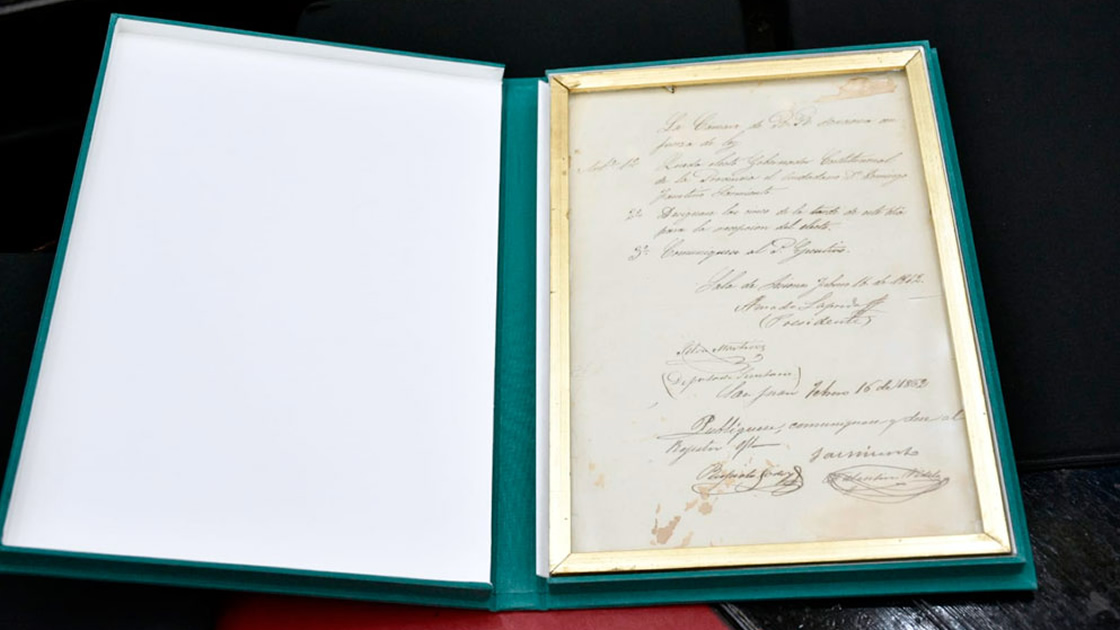 La Camara de RR. decreta con
fuerza de ley
Art. 1º Queda electo Gobernador Constitucional
de la Provincia el ciudadano Dn. Domingo
Faustino Sarmiento
2º Designase las cinco de la tarde de este dia
para la recepcion del electo.
3º Comuniquese al P. Ejecutivo.
Sala de Sesiones Febrero 16 de 1862
Amado Laprida
(Presidente)
Martinez
(Diputado Secretario)
San Juan Febrero 16 de 1862
Publiquese, comuniquese y dese al
Registro Ofl.
Sarmiento
Ruperto Godoy
Valentin Videla